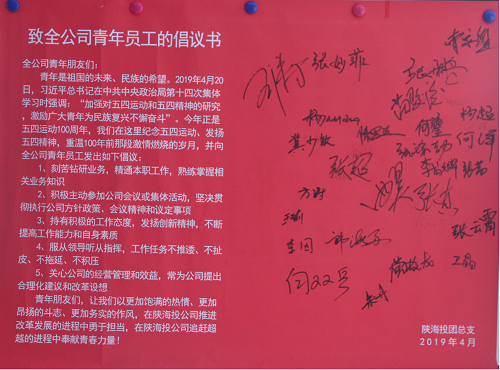 致全公司青年员工的倡议书
全公司青年朋友们：
青年是祖国的未来、民族的希望。2019年4月20
日，习近平总书记在中共中央政治局第十四次集体
学习时强调：“加强对五四运动和五四精神的研究
，激励广大青年为民族复兴不懈奋斗”。今年正是
五四运动100周年，我们在这里纪念五四运动、发扬
五四精神，重温100年前那段激情燃烧的岁月，并向
全公司青年员工发出如下倡议：
1、刻苦钻研业务，精通本职工作，熟练掌握相
关业务知识
2、积极主动参加公司会议或集体活动，坚决贯
彻执行公司方针政策、会议精神和议定事项
3、持有积极的工作态度，发扬创新精神，不断
提高工作能力和自身素质
4、服从领导听从指挥，工作任务不推诿、不扯
皮、不拖延、不积压
5、关心公司的经营管理和效益，常为公司提出
合理化建议和改革设想
青年朋友们，让我们以更加饱满的热情、更加
昂扬的斗志、更加务实的作风，在陕海投公司推进
改革发展的进程中勇于担当，在陕海投公司追赶超
越的进程中奉献青春力量！
张妙菲
杨超
何萍
张超
方财
张云霄
李园
向双兵
王磊
陕海投团总支
2019年4月